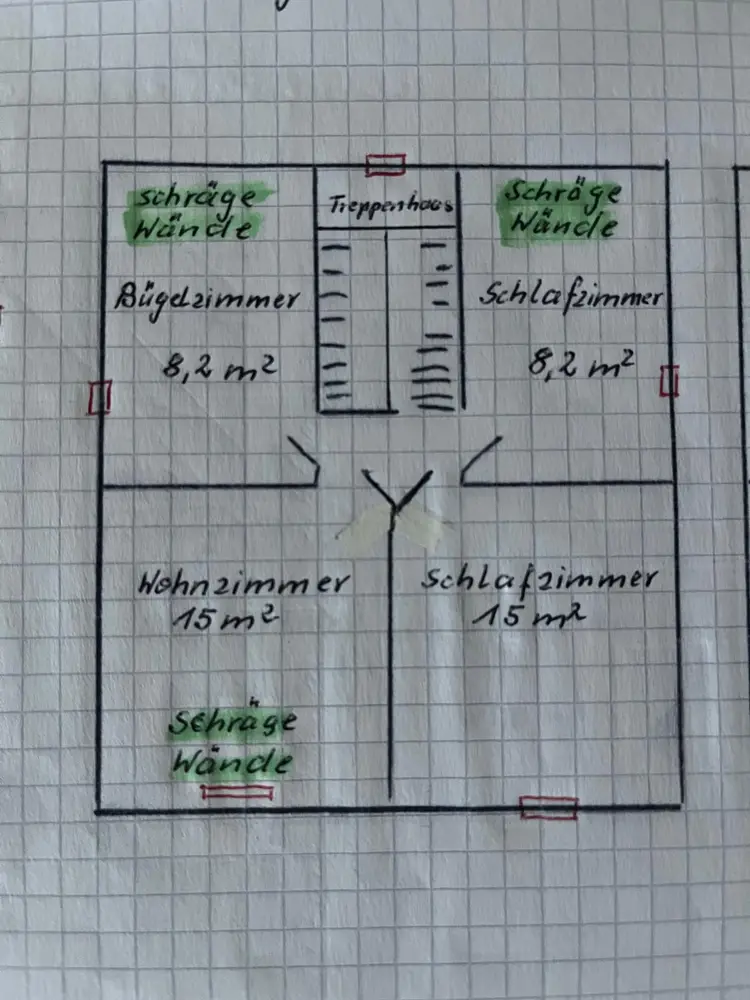 schräge
Wände
Treppenhaus
Schräge
Wände
Bügelzimmer
8,2 m²
Schlafzimmer
8,2 m²
Wohnzimmer
15 m²
Schlafzimmer
15 m²
Schräge
Wände